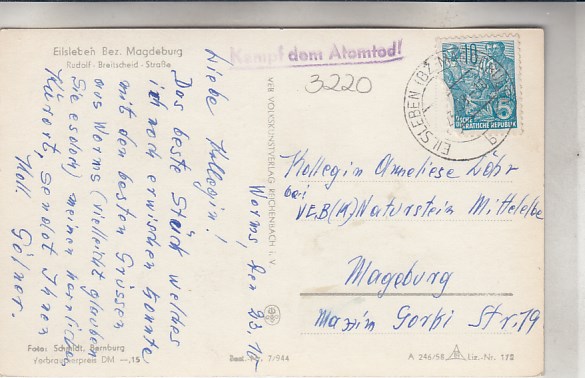 Eilsleben Bez. Magdeburg
Rudolf-Breitscheid-Straße
Kampf dem Atomtod!
3220
EILSLEBEN (BZ M
5
DEUTSCHE DEMOKRATISCHE REPUBLIK
Worms, den 23.10.
Liebe Kollegin!
Das beste Stück welches
ich noch erwischen konnte
mit den besten Grüssen
aus Worms (vielleicht glauben
Sie es doch) meinen herrlichen
Kurort, sendet Ihnen
Koll.
Gölner.
VEB VOLKSKUNSTVERLAG REICHENBACH i. V.
Kollegin Anneliese Löhr
bei
VEB(K) Naturstein Mittelelbe
Magdeburg
Maxim Gorki Str. 19
Foto: Schmidt, Bernburg
Verbraucherpreis DM —,15
Best.-Nr. 7/944
A 246/58
Liz.-Nr. 178